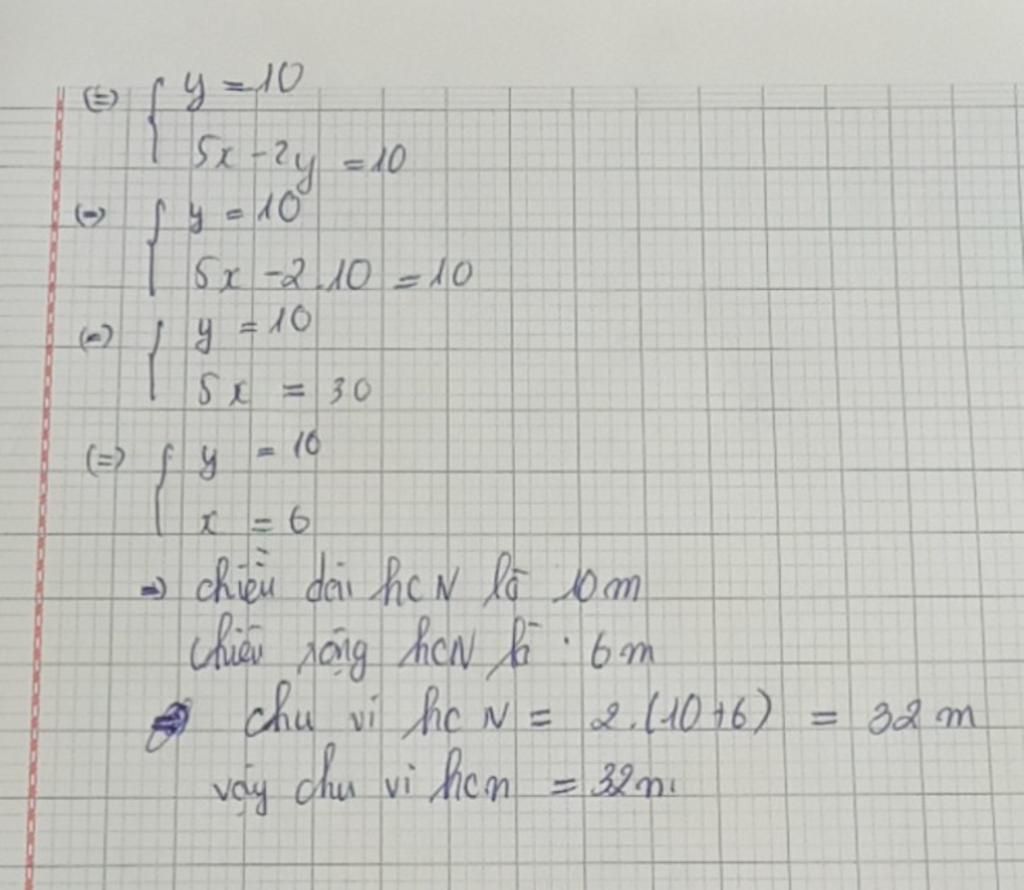 (=) { y = 10
5x - 2y = 10
(=) { y = 10
5x - 2.10 = 10
(=) { y = 10
5x = 30
(=) { y = 10
x = 6
=) chiều dài hcN là 10m
chiều rộng hcN là : 6m
=) chu vi hcN = 2.(10+6) = 32 m
vậy chu vi hcn = 32m.